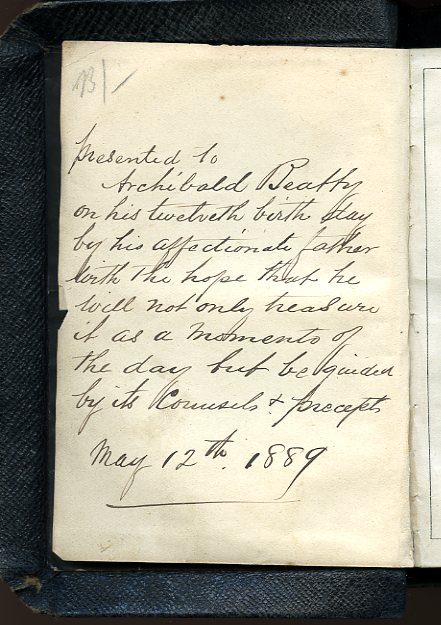 presented to
Archibald Beatty
on his twelveth birth day
by his affectionate father
with the hope that he
will not only treasure
it as a momento of
the day but be guided
by its Counsels & precepts
May 12th. 1889